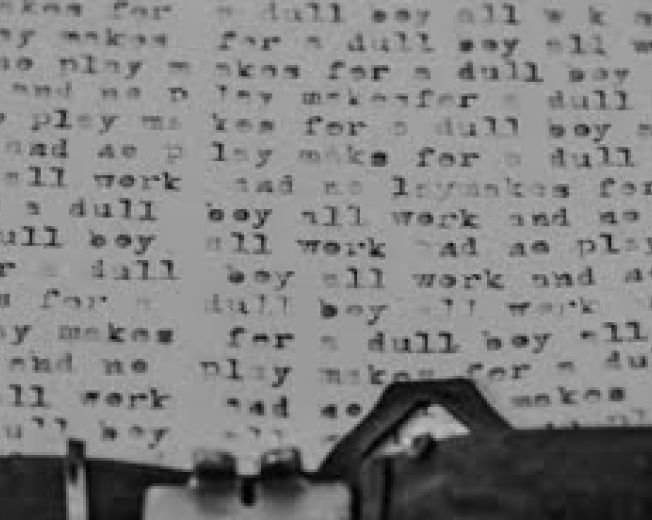 akes for a dull boy all w k a
ay makes for a dull boy all w
no play makes for a dull boy
and no p lay makesfor a dull
play ma kes for a dull boy a
and no p lay maks for a dull
all work and no laymakes for
a dull boy all work and no
ull boy all work and no play
r a dull boy all work and no
s for a dull boy all work
ay makes for a dull boy all
and no play makes for a du
all work and no makes
ull boy all pl